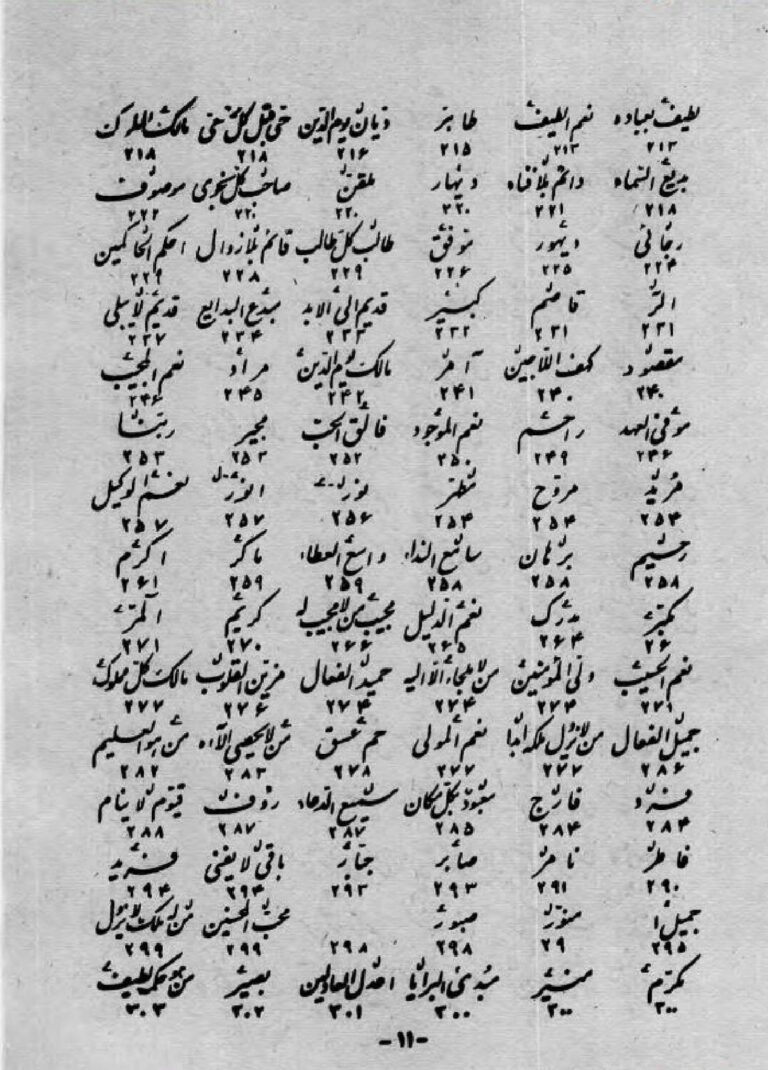 لطیف بعباده نعم اللطیف طاهر دیان یوم الدین حی قبل کل حی مالک الملوک
۲۱۳ ۲۱۳ ۲۱۵ ۲۱۶ ۲۱۸ ۲۱۸
بدیع السماء دائم بلا فناء دیهار مقرن صاحب کل نجوی موصوف
۲۱۸ ۲۲۱ ۲۲۰ ۲۲۰ ۲۲۰ ۲۲۲
دیهور موفق طالب کل طالب قائم بلا زوال احکم الحاکمین
۲۲۴ ۲۲۵ ۲۲۶ ۲۲۹ ۲۲۸ ۲۲۹
قاصم کبیر قدیم الی الابد مبدع البدایع قدیم لا یبلی
۲۳۱ ۲۳۱ ۲۳۲ ۲۳۳ ۲۳۴ ۲۳۷
مقصود کهف اللاجین آمر مالک یوم الدین مراد نعم المجیب
۲۴۰ ۲۴۰ ۲۴۱ ۲۴۲ ۲۴۵ ۲۴۶
موفی العهد راحم نعم الموجود فالق الحب مجیر ربنا
۲۴۶ ۲۴۹ ۲۵۰ ۲۵۲ ۲۵۳ ۲۵۳
مرید مروح مطهر نور انور نعم الوکیل
۲۵۴ ۲۵۴ ۲۵۴ ۲۵۶ ۲۵۷ ۲۵۷
رحیم برهان سامع النداء واسع العطاء ماکر اکرم
۲۵۸ ۲۵۸ ۲۵۸ ۲۵۹ ۲۵۹ ۲۶۱
مکبر مدرک نعم الدلیل مجیب من لا مجیب له کریم
۲۶ ۲۶۴ ۲۶۵ ۲۶۶ ۲۷۰ ۲۷۱
نعم الحسیب ولی المؤمنین من لا ملجاء الا الیه حمید الفعال مزین القلوب مالک کل مملوک
۲۷۱ ۲۷۴ ۲۷۴ ۲۷۴ ۲۷۶ ۲۷۷
جمیل الفعال من لا یزول ملکه ابدا نعم المولی حم عسق من لا یحصی الآاه من هو السلیم
۲۸۶ ۲۷۷ ۲۷۷ ۲۷۸ ۲۸۳ ۲۸۲
فرد فارج معبود بکل مکان سمیع الدعاء رؤف قیوم لا ینام
۲۸۴ ۲۸۴ ۲۸۵ ۲۸۷ ۲۸۷ ۲۸۸
فاطر ناصر صابر باقی لا یفنی فرید
۲۹۰ ۲۹۱ ۲۹۳ ۲۹۳ ۲۹۴ ۲۹۴
منور صبور محب المحسنین
۲۹۵ ۲۹ ۲۹۸ ۲۹۸ ۲۹۹ ۲۹۹
مکرم منیر مبدئ البرایا اعدل العادلین بصیر
۳۰۰ ۳۰۰ ۳۰۰ ۳۰۱ ۳۰۲ ۳۰۳
-۱۱-